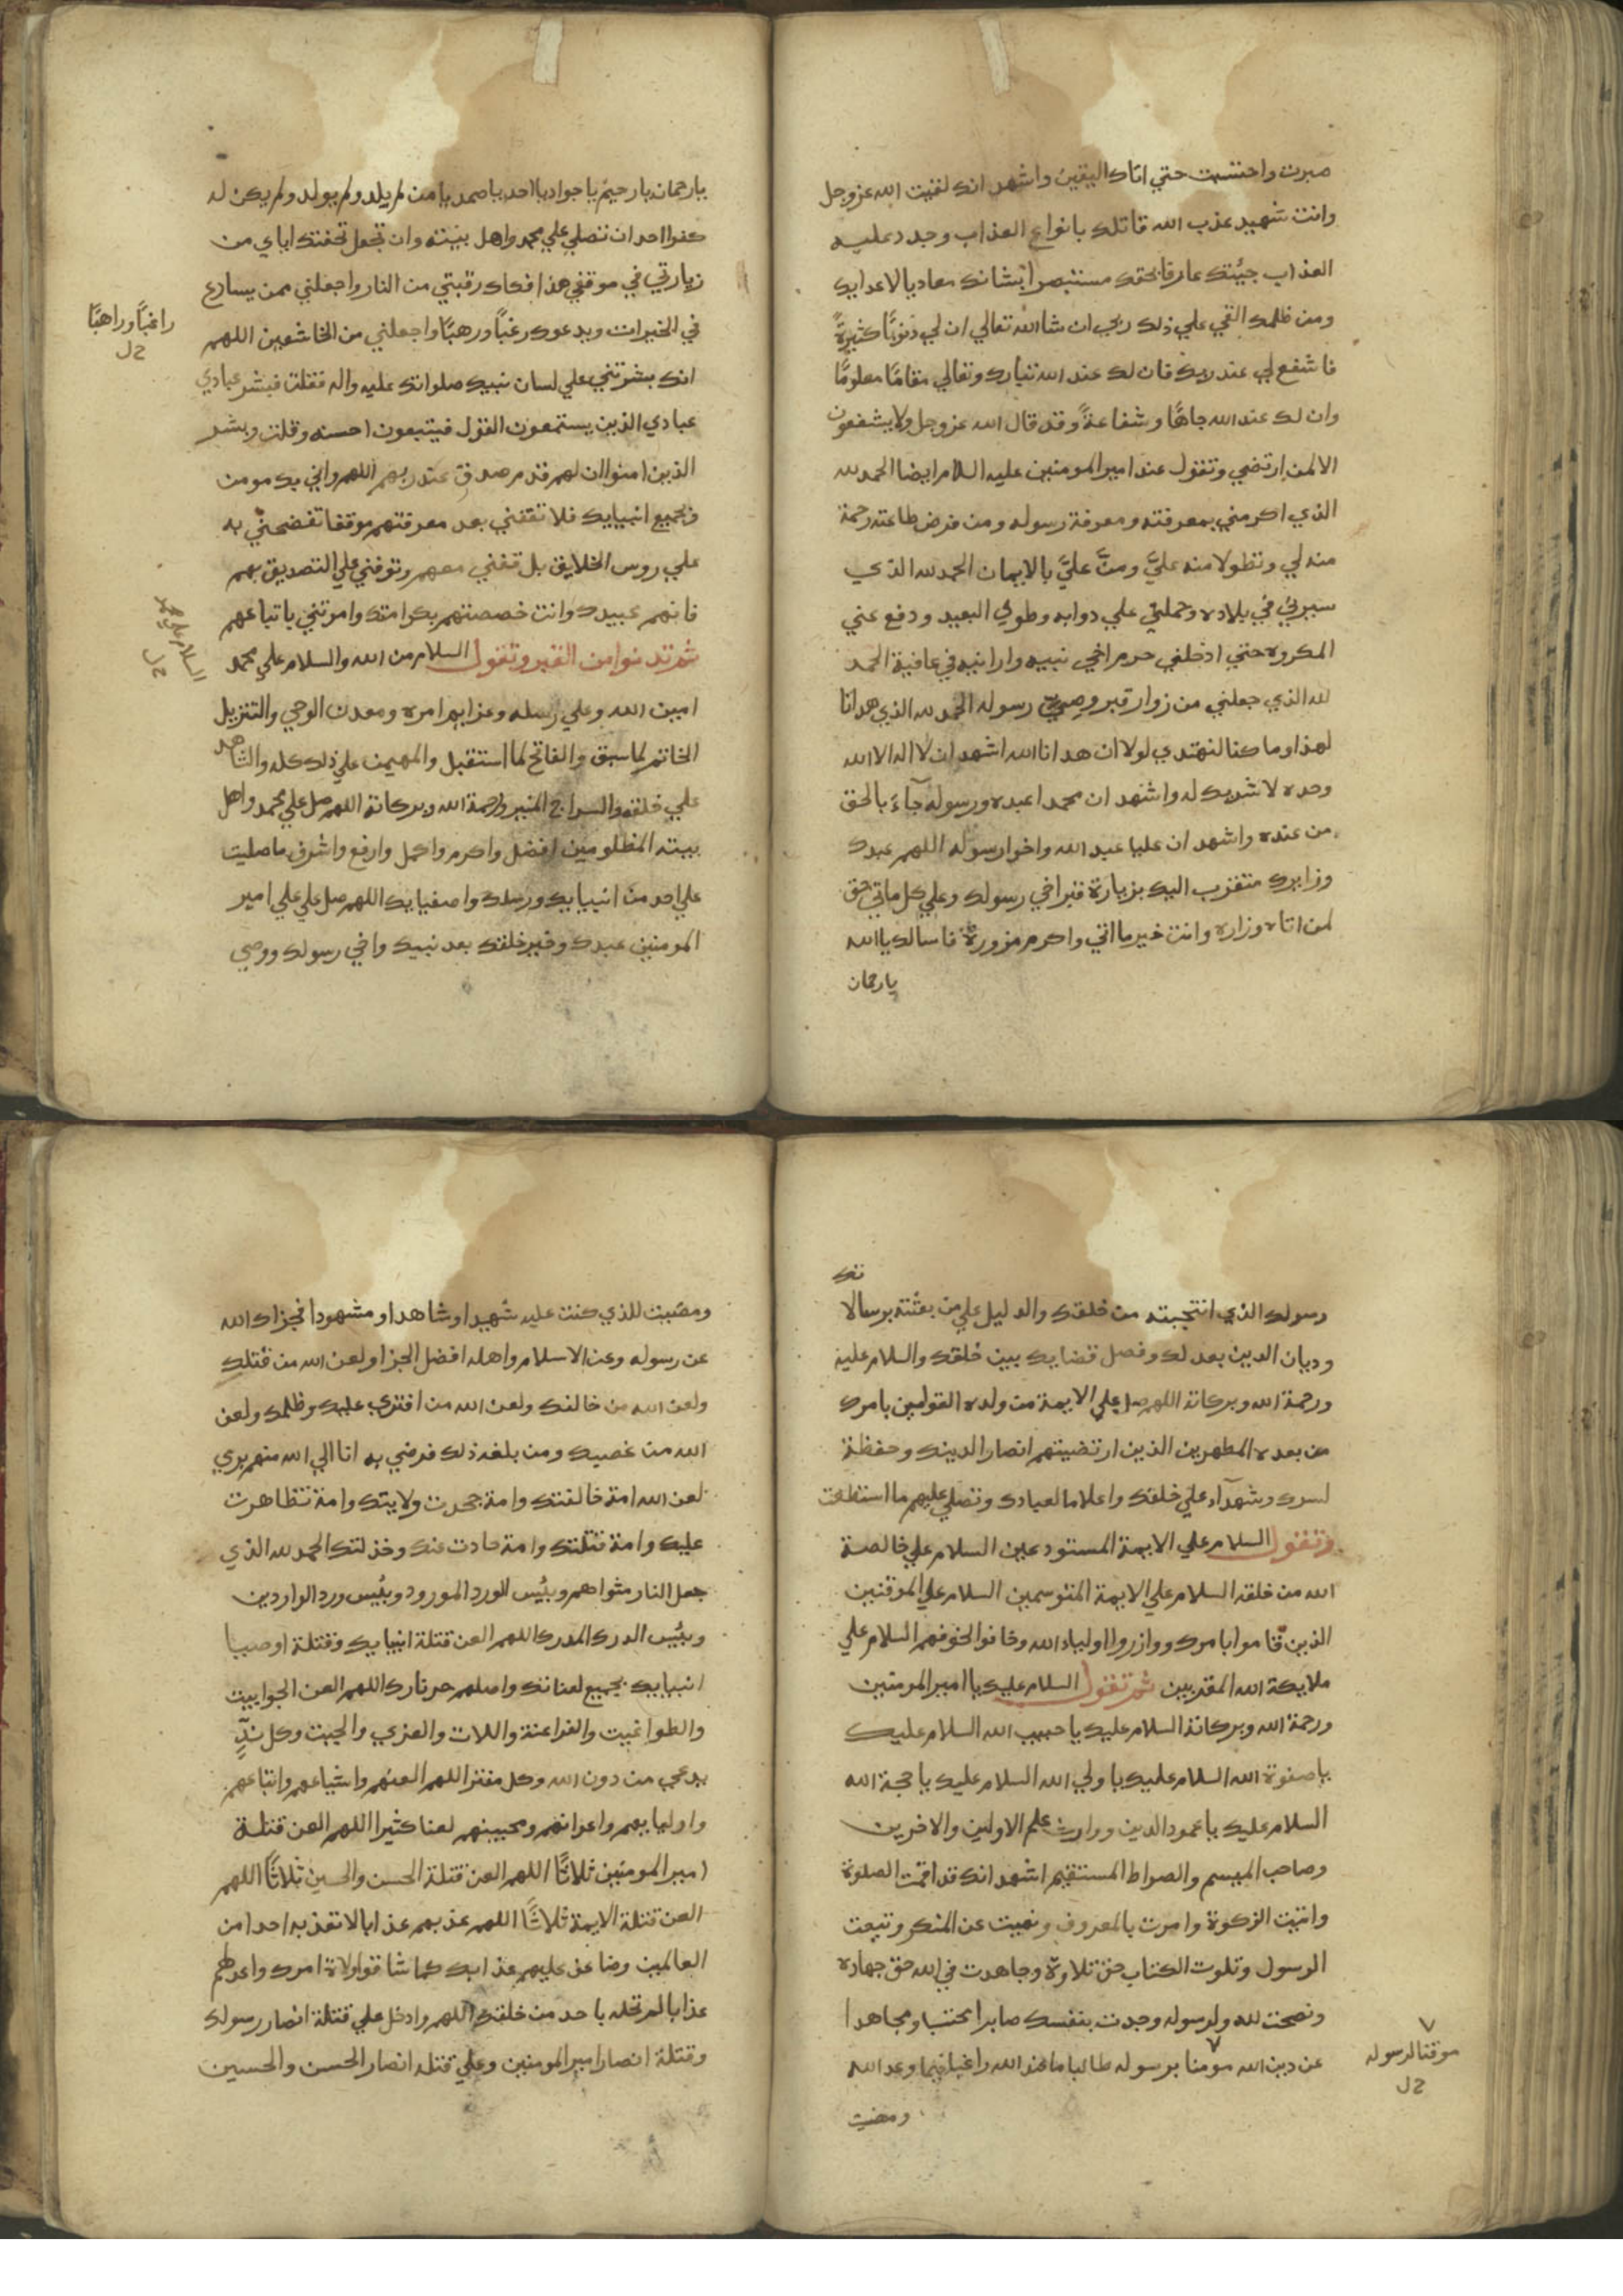 صبرت واحتسبت حتي اتاك اليقين واشهد انك لقيت الله عز وجل
وانت شهيد عذب الله قاتلك بانواع العذاب وجدد عليه
العذاب جيئتك عارفا بحقك مستبصرا بشانك معاديا لاعدايك
ومن ظلمك القي علي ذلك ربي ان شا الله تعالي ان لي ذنوبًا كثيرةً
فاشفع لي عند ربك فان لك عند الله تبارك وتعالي مقامًا معلومًا
وان لك عند الله جاهًا وشفاعةً وقد قال الله عز وجل ولا يشفعون
الا لمن ارتضي وتقول عند امير المومنين عليه السلام ايضا الحمد لله
الذي اكرمني بمعرفته ومعرفة رسوله ومن فرض طاعته رحمة
منه لي وتطولا منه عليَّ ومنَّ عليَّ بالايمان الحمد لله الذي
سيرني في بلاده وحملني علي دوابه وطوي لي البعيد ودفع عني
المكروه حتي ادخلني حرم اخي نبيه وارانيه في عافية الحمد
لله الذي جعلني من زوار قبر وصيّ رسوله الحمد لله الذي هدانا
لهذا وما كنا لنهتدي لولا ان هدانا الله اشهد ان لا اله الا الله
وحده لا شريك له واشهد ان محمدا عبده ورسوله جآءَ بالحق
من عنده واشهد ان عليا عبد الله واخو رسوله اللهم عبدك
وزايرك متقرب اليك بزيارة قبر اخي رسولك وعلي كل ماتي حق
لمن اتاه وزاره وانت خير ماتي واكرم مزورة فاسالك يا الله
يا رحمان
يا رحمان يا رحيم يا جواد يا احد يا صمد يا من لم يلد ولم يولد ولم يكن له
كفوا احد ان تصلي علي محمد واهل بيته وان تجعل تحفتك اياي من
زيارتي في موقفي هذا فكاك رقبتي من النار واجعلني ممن يسارع
في الخيرات ويدعوك رغبًا ورهبًا واجعلني من الخاشعين اللهم
راغبًا وراهبًا
خ ل
انك بشرتني علي لسان نبيك صلواتك عليه واله فقلت فبشر عبادي
عبادي الذين يستمعون القول فيتبعون احسنه وقلت وبشر
الذين امنوا ان لهم قدم صدق عند ربهم اللهم واني بك مومن
وبجميع انبيايك فلا تقفني بعد معرفتهم موقفا تفضحني به
علي روس الخلايق بل قفني معهم وتوفني علي التصديق بهم
فانهم عبيدك وانت خصصتهم بكرامتك وامرتني باتباعهم
ثم تدنوا من القبر وتقول السلام من الله والسلام علي محمد
السلام علي محمد
خ ل
امين الله وعلي رسله وعزايم امره ومعدن الوحي والتنزيل
الخاتم لما سبق والفاتح لما استقبل والمهيمن علي ذلك كله والشاهد
علي خلقه والسراج المنير ورحمة الله وبركاته اللهم صل علي محمد واهل
بيته المظلومين افضل واكرم واكمل وارفع واشرف ما صليت
علي احد من انبيايك ورسلك واصفيايك اللهم صل علي علي امير
المومنين عبدك وخير خلقك بعد نبيك واخي رسولك ووصي
رسولك الذي انتجبته من خلقك والدليل علي من بعثته برسالا
تك
وديان الدين بعدلك وفصل قضايك بين خلقك والسلام عليه
ورحمة الله وبركاته اللهم صل علي الايمة من ولده القوامين بامرك
من بعده المطهرين الذين ارتضيتهم انصارا لدينك وحفظة
لسرك وشهدآء علي خلقك واعلاما لعبادك وتصلي عليهم ما استطعت
وتقول السلام علي الايمة المستودعين السلام علي خالصة
الله من خلقه السلام علي الايمة المتوسمين السلام علي الموقنين
الذين قاموا بامرك ووازروا اولياء الله وخافوا لخوفهم السلام علي
ملايكة الله المقربين ثم تقول السلام عليك يا امير المومنين
ورحمة الله وبركاته السلام عليك يا حبيب الله السلام عليك
يا صفوة الله السلام عليك يا ولي الله السلام عليك يا حجة الله
السلام عليك يا عمود الدين ووارث علم الاولين والاخرين
وصاحب الميسم والصراط المستقيم اشهد انك قد اقمت الصلوة
واتيت الزكوة وامرت بالمعروف ونهيت عن المنكر وتبعت
الرسول وتلوت الكتاب حق تلاوته وجاهدت في الله حق جهاده
ونصحت لله ولرسوله وجدت بنفسك صابرا محتسبا ومجاهدا
عن دين الله مومنا برسوله طالبا ما عند الله راغبا فيما وعد الله
موقنا لرسوله
خ ل
ومضيت
ومضيت للذي كنت عليه شهيدا وشاهدا ومشهودا فجزاك الله
عن رسوله وعن الاسلام واهله افضل الجزا ولعن الله من قتلك
ولعن الله من خالفك ولعن الله من افتري عليك وظلمك ولعن
الله من غصبك ومن بلغه ذلك فرضي به انا الي الله منهم بري
لعن الله امة خالفتك وامة جحدت ولايتك وامة تظاهرت
عليك وامة قتلتك وامة حادت عنك وخذلتك الحمد لله الذي
جعل النار مثواهم وبئيس الورد المورود وبئيس ورد الواردين
وبئيس الدرك المدرك اللهم العن قتلة انبيايك وقتلة اوصيا
انبيايك بجميع لعناتك واصلهم حر نارك اللهم العن الجوابيت
والطواغيت والفراعنة واللات والعزي والجبت وكل ندٍّ
يدعي من دون الله وكل مفتر اللهم العنهم واشياعهم واتباعهم
واوليايهم واعوانهم ومحبيهم لعنا كثيرا اللهم العن قتلة
امير المومنين ثلاثًا اللهم العن قتلة الحسن والحسين ثلاثًا اللهم
العن قتلة الايمة ثلاثًا اللهم عذبهم عذابا لا تعذبه احدا من
العالمين وضاعف عليهم عذابك كما شاقوا ولاة امرك واعد لهم
عذابا لم تحله باحد من خلقك اللهم وادخل علي قتلة انصار رسولك
وقتلة انصار امير المومنين وعلي قتلة انصار الحسن والحسين